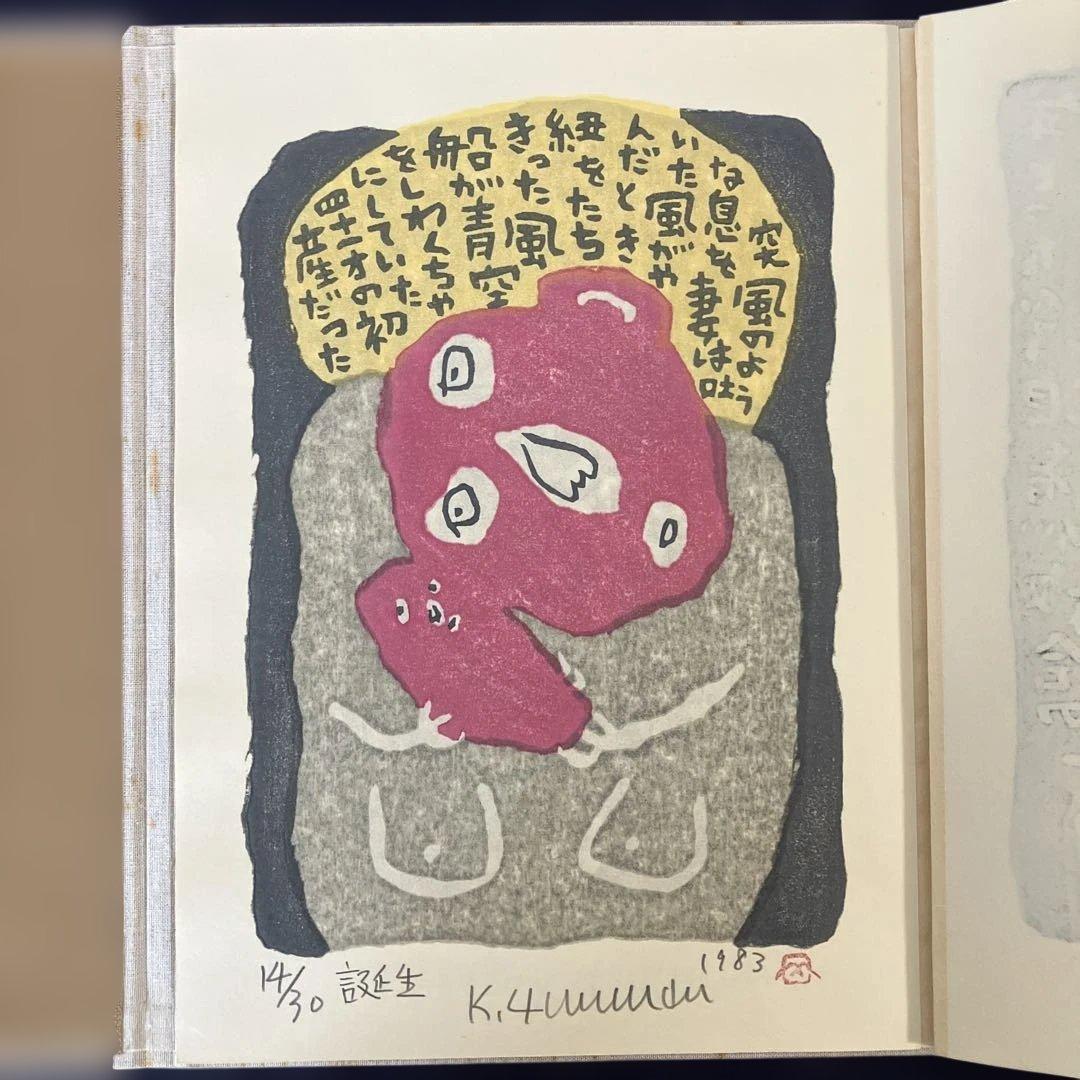 突風のよう
な息を妻は吐
いた風がや
んだとき
紐をたち
きった風
船が青空
をしわくちゃ
にしていた
四十才の初
産だった
14/30 誕生
K.
1983